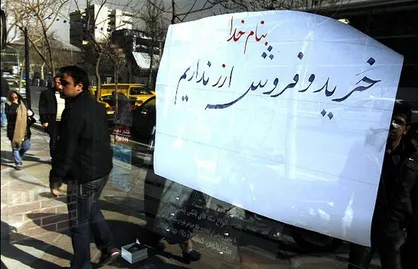 بنام خدا
خرید و فروش ارز نداریم